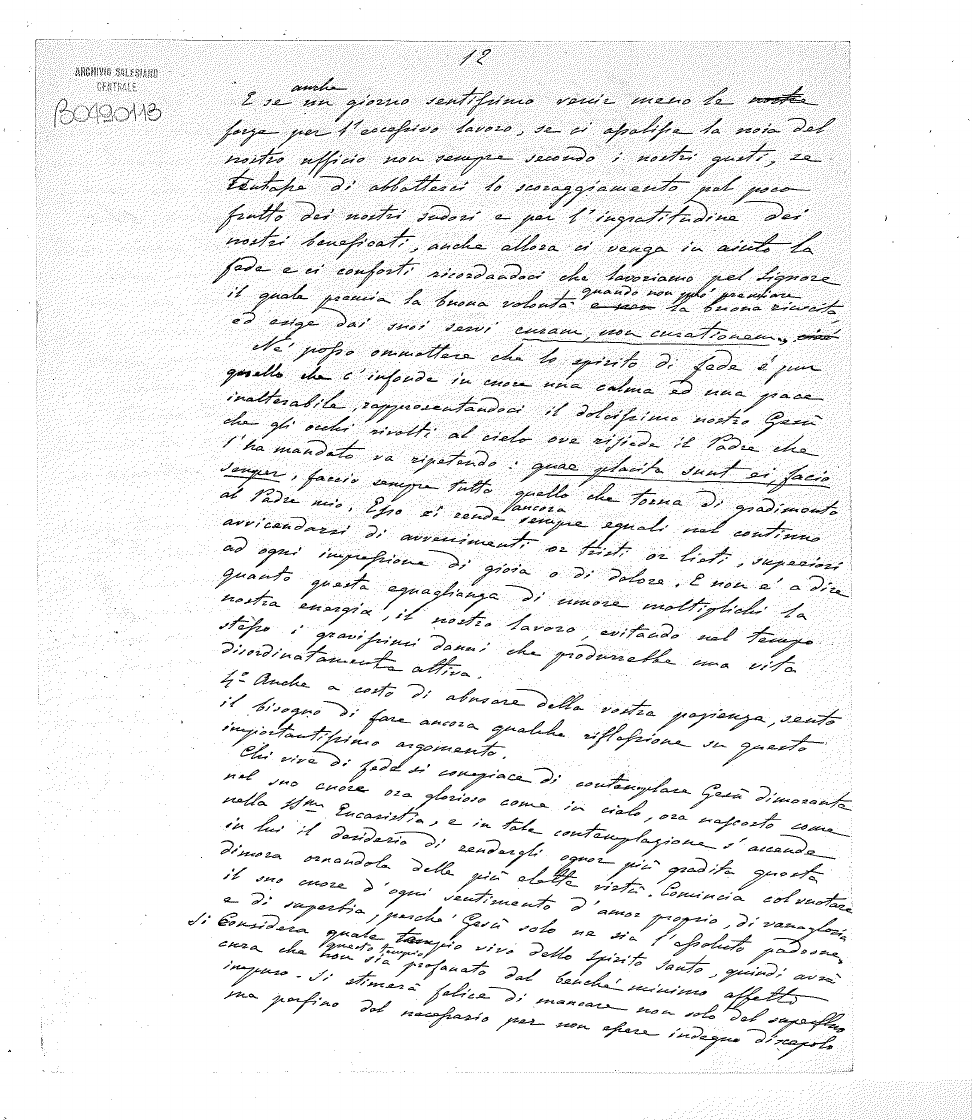 12
ARCHIVIO SALESIANO
CENTRALE
B0490113
anche
E se un giorno sentissimo venir meno le nostre
forze per l'eccessivo lavoro, se ci assalisse la noia del
nostro ufficio non sempre secondo i nostri gusti, se
tentasse di abbatterci lo scoraggiamento pel poco
frutto dei nostri sudori e per l'ingratitudine dei
nostri beneficati, anche allora ci venga in aiuto la
fede e ci conforti ricordandoci che lavoriamo pel Signore
quando non può premiare
il quale premia la buona volontà e non la buona riuscita,
ed esige dai suoi servi curam, non curationem, cioè
Nè posso ommettere che lo spirito di fede è pur
quello che c'infonde in cuore una calma ed una pace
inalterabile, rappresentandoci il dolcissimo nostro Gesù
che gli occhi rivolti al cielo ove risiede il Padre che
l'ha mandato va ripetendo: quae placita sunt ei, facio
semper, faccio sempre tutto quello che torna di gradimento
ancora
al Padre mio. Esso ci rende sempre eguali nel continuo
avvicendarsi di avvenimenti or tristi or lieti, superiori
ad ogni impressione di gioia o di dolore. E non è a dire
quanto questa eguaglianza di umore moltiplichi la
nostra energia, il nostro lavoro, evitando nel tempo
stesso i gravissimi danni che produrrebbe una vita
disordinatamente attiva.
4º Anche a costo di abusare della vostra pazienza, sento
il bisogno di fare ancora qualche riflessione su questo
importantissimo argomento.
Chi vive di fede si compiace di contemplare Gesù dimorante
nel suo cuore ora glorioso come in cielo, ora nascosto come
nella SSma Eucaristia, e in tale contemplazione s'accende
in lui il desiderio di rendergli ognor più gradita questa
dimora ornandola delle più elette virtù. Comincia col vuotare
il suo cuore d'ogni sentimento d'amor proprio, di vanagloria
e di superbia, perchè Gesù solo ne sia l'assoluto padrone,
Si Considera quale tempio vivo dello Spirito Santo, quindi avrà
questo tempio
cura che non sia profanato dal benchè minimo affetto
impuro. Si stimerà felice di mancare non solo del superfluo
ma perfino del necessario per non essere indegno discepolo